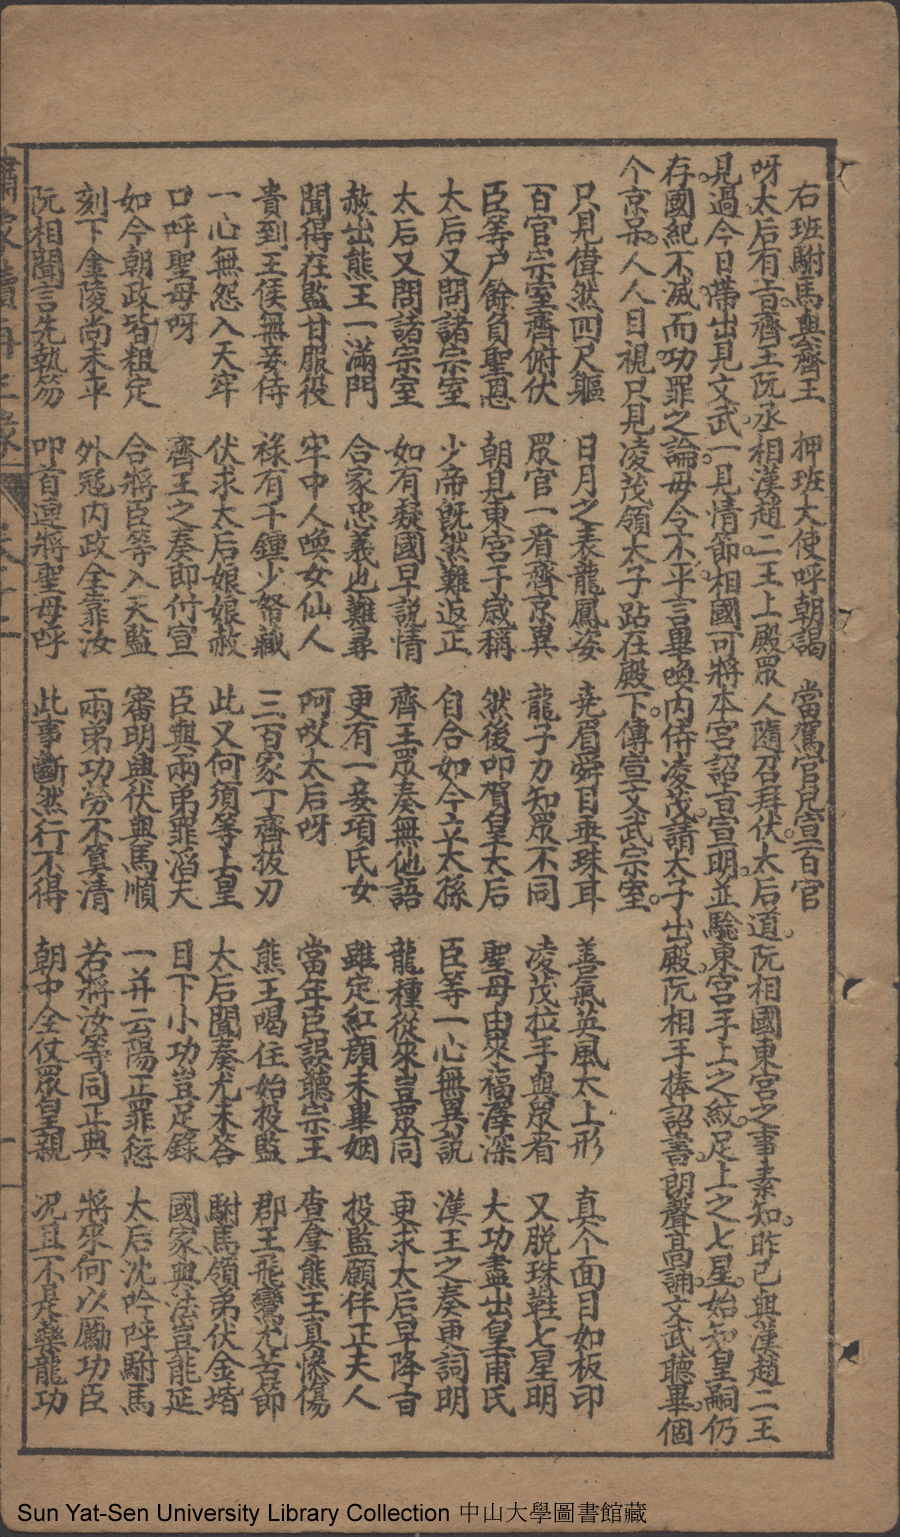 右班駙馬與齊王　押班大使呼朝謁　當駕官兒宣百官
呀太后有旨齊王阮丞相漢趙二王上殿眾人隨召拜伏。太后道。阮相國東宮之事素知。昨已與漢趙二王
見過今日帶出見文武一見情節相國可將本宮詔旨宣明。並驗東宮手上之紋。足上之七星。始知皇嗣仍
存。國紀不滅而功罪之論。毋令不平。言畢喚內侍凌茂。請太子出殿阮相手捧詔書。朗聲高誦。文武聽畢。個
个京呆。人人目視只見凌茂領太子跕在殿下。傳宣文武宗室。
只見偉然四尺軀　日月之表龍鳳姿　堯眉舜目垂珠耳　善氣英風太上形　真个面目如板印
百官宗室齊俯伏　眾官一看齊京異　龍子力知眾不同　凌茂拉手與眾看　又脫珠鞋七星明
臣等戶餘負聖恩　朝見東宮千歲稱　然後叩賀皇太后　聖母由來福澤深　大功盡出皇甫氏
太后又問諸宗室　少帝既然難返正　自合如今立太孫　臣等一心無異説　漢王之奏更詞明
太后又問諸宗室　如有疑國早説情　齊王眾奏無他語　龍種從來豈眾同　更求太后早降旨
赦出熊王一滿門　合家忠義也難尋　更有一妾項氏女　雖定紅顏未畢姻　投監願伴正夫人
聞得在監甘服役　牢中人喚女仙人　阿㕦太后呀　當年臣誤聽宗王　查拿熊王真慘傷
貴到王侯無妾侍　祿有千鍾少帑藏　三百家丁齊拔刃　熊王喝住始投監　郡王飛鸞尤苦節
一心無怨入天牢　伏求太后娘娘赦　此又何須等上皇　太后聞奏尤未答　駙馬領弟伏金堦
口呼聖母呀　齊王之奏即付宣　臣與兩弟罪滔天　目下小功豈足錄　國家典法豈能延
如今朝政皆粗定　合將臣等入天監　審明典伏與馬順　一并云陽正罪愆　太后沈吟呼駙馬
刻下金陵尚未平　外寇內政全靠汝　兩弟功勞不算清　若將汝等同正典　將來何以勵功臣
阮相聞言先執笏　叩首連將聖母呼　此事斷然行不得　朝中全仗眾皇親　况且不是藝龍功